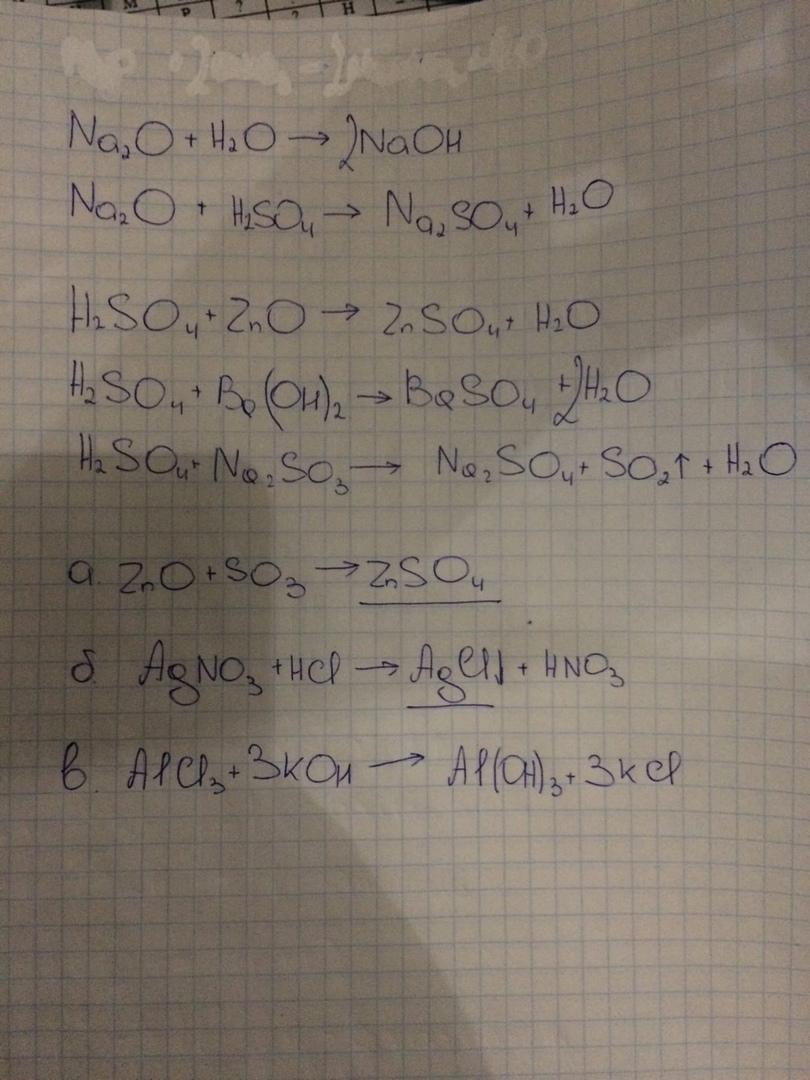 Na₂O + H₂O → 2NaOH
Na₂O + H₂SO₄ → Na₂SO₄ + H₂O
H₂SO₄ + ZnO → ZnSO₄ + H₂O
H₂SO₄ + Ba(OH)₂ → BaSO₄ + 2H₂O
H₂SO₄ + Na₂SO₃ → Na₂SO₄ + SO₂↑ + H₂O
а. ZnO + SO₃ → ZnSO₄
б. AgNO₃ + HCl → AgCl↓ + HNO₃
в. AlCl₃ + 3KOH → Al(OH)₃ + 3KCl